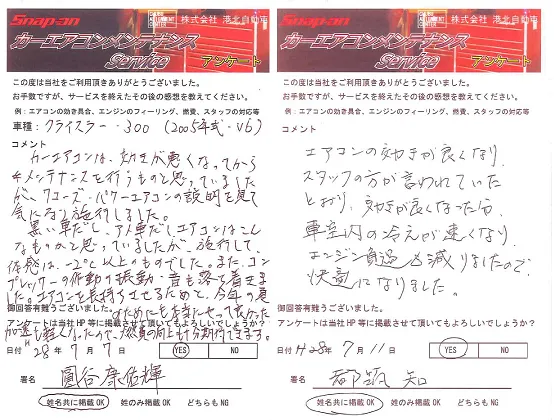 Snap-on
株式会社 港北自動車
カーエアコンメンテナンス
Service アンケート
この度は当社をご利用頂きありがとうございました。
お手数ですが、サービスを終えたその後の感想を教えてください。
例:エアコンの効き具合、エンジンのフィーリング、燃費、スタッフの対応等
車種:クライスラー・300(2005年式・V6)
コメント
カーエアコンは、効きが悪くなってから
メンテナンスを行うものと思っていました
が、ワコーズ・パワーエアコンの説明を見て
気になり施行しました。
黒い車だし、アメ車だしエアコンはこん
なものかと思っていましたが、施行して、
体感は、-2℃以上のものでした。また、コン
プレッサーの作動の振動・音も落ち着きま
した。エアコンを長持ちさせるためと、今年の夏
のためにも本当にやって良かった
加速も軽くなったので、燃費の向上も十分期待できます。
御回答有難うございました。
アンケートは当社HP等に掲載させて頂いてもよろしいでしょうか?
YES NO
日付 H28年 7月 7日
署名
姓名共に掲載OK 姓のみ掲載OK どちらもNG
Snap-on
株式会社 港北自動車
カーエアコンメンテナンス
Service アンケート
この度は当社をご利用頂きありがとうございました。
お手数ですが、サービスを終えたその後の感想を教えてください。
例:エアコンの効き具合、エンジンのフィーリング、燃費、スタッフの対応等
コメント
エアコンの効きが良くなり、
スタッフの方が言われていた
とおり、効きが良くなった分、
車室内の冷えが速くなり、
エンジン負過も減りましたので、
快適になりました。
御回答有難うございました。
アンケートは当社HP等に掲載させて頂いてもよろしいでしょうか?
YES NO
日付 H28年 7月 11日
署名
姓名共に掲載OK 姓のみ掲載OK どちらもNG